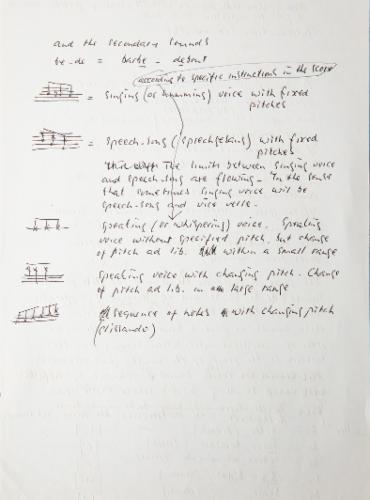 and the secondary sounds
be-de = barbe - debout
according to specific instructions in the score
= singing (or humming) voice with fixed
pitches
= speech-song (sprechgesang) with fixed
pitches.
The limits between singing voice
and speech-song are flowing - In the sense
that sometimes singing voice will be
speech-song and vice verse.
speaking (or whispering) voice. Speaking
voice without specified pitch, but change
of pitch ad lib. within a small range
Speaking voice with changing pitch. Change
of pitch ad lib. in large range
sequence of notes with changing pitch
(glissando)